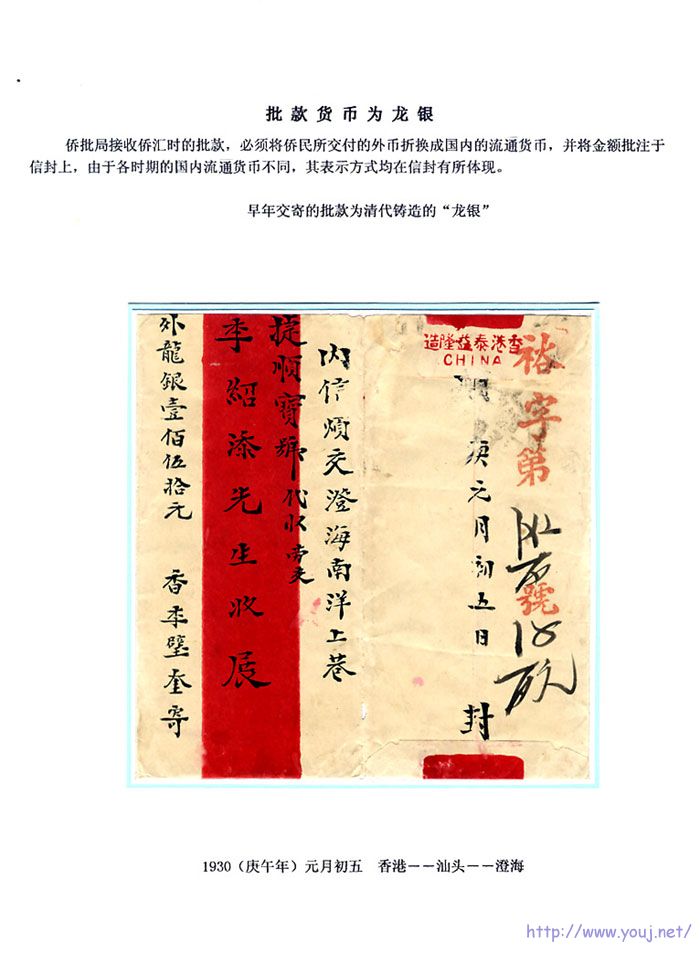 批款货币为龙银
侨批局接收侨汇时的批款，必须将侨民所交付的外币折换成国内的流通货币，并将金额批注于
信封上，由于各时期的国内流通货币不同，其表示方式均在信封有所体现。
早年交寄的批款为清代铸造的“龙银”
祐字第
號
造隆益泰港香
CHINA
庚元月初五日
封
內信煩交澄海南洋上巷
捷順寶號代收
李紹添先生收展
外龍銀壹佰伍拾元
香李壁奎寄
1930（庚午年）元月初五　香港——汕头——澄海
http://www.youj.net/